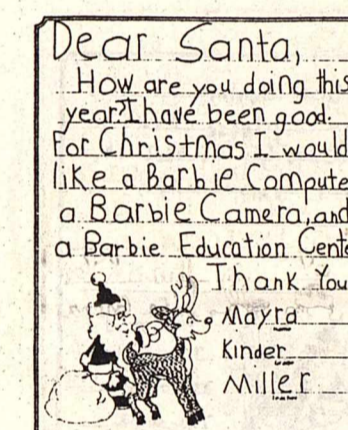 Dear Santa,
How are you doing this
year? I have been good.
For Christmas I would
like a Barbie Compute
a Barbie Camera, and
a Barbie Education Cente
Thank You
Mayra
Kinder
Miller